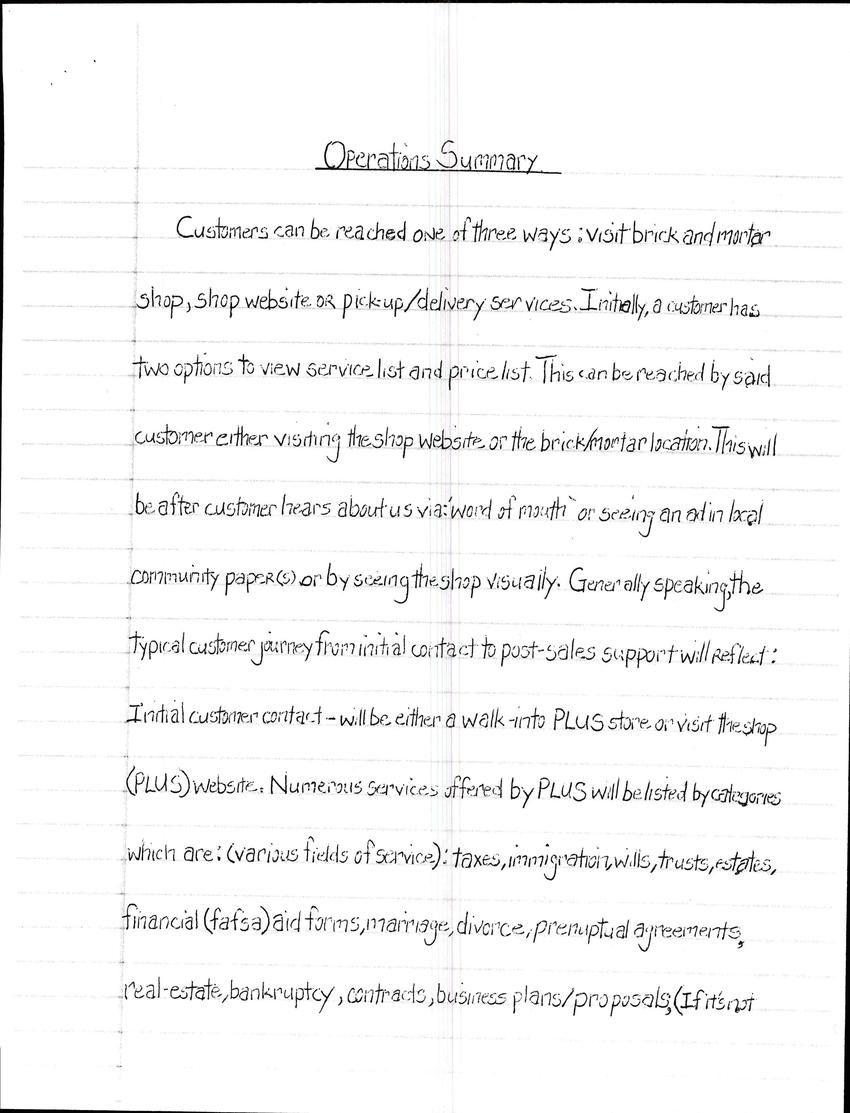 Operations Summary
Customers can be reached one of three ways: visit brick and mortar
shop, shop website OR pick-up/delivery services. Initially, a customer has
two options to view service list and price list. This can be reached by said
customer either visiting the shop website or the brick/mortar location. This will
be after customer hears about us via: "word of mouth" or seeing an ad in local
community paper(s) or by seeing the shop visually. Generally speaking, the
typical customer journey from initial contact to post-sales support will Reflect:
Initial customer contact - will be either a walk-into PLUS store or visit the shop
(PLUS) website. Numerous services offered by PLUS will be listed by categories
which are: (various fields of service): taxes, immigration, wills, trusts, estates,
financial (fafsa) aid forms, marriage, divorce, prenuptual agreements,
real-estate, bankruptcy, contracts, business plans/proposals, (If it's not